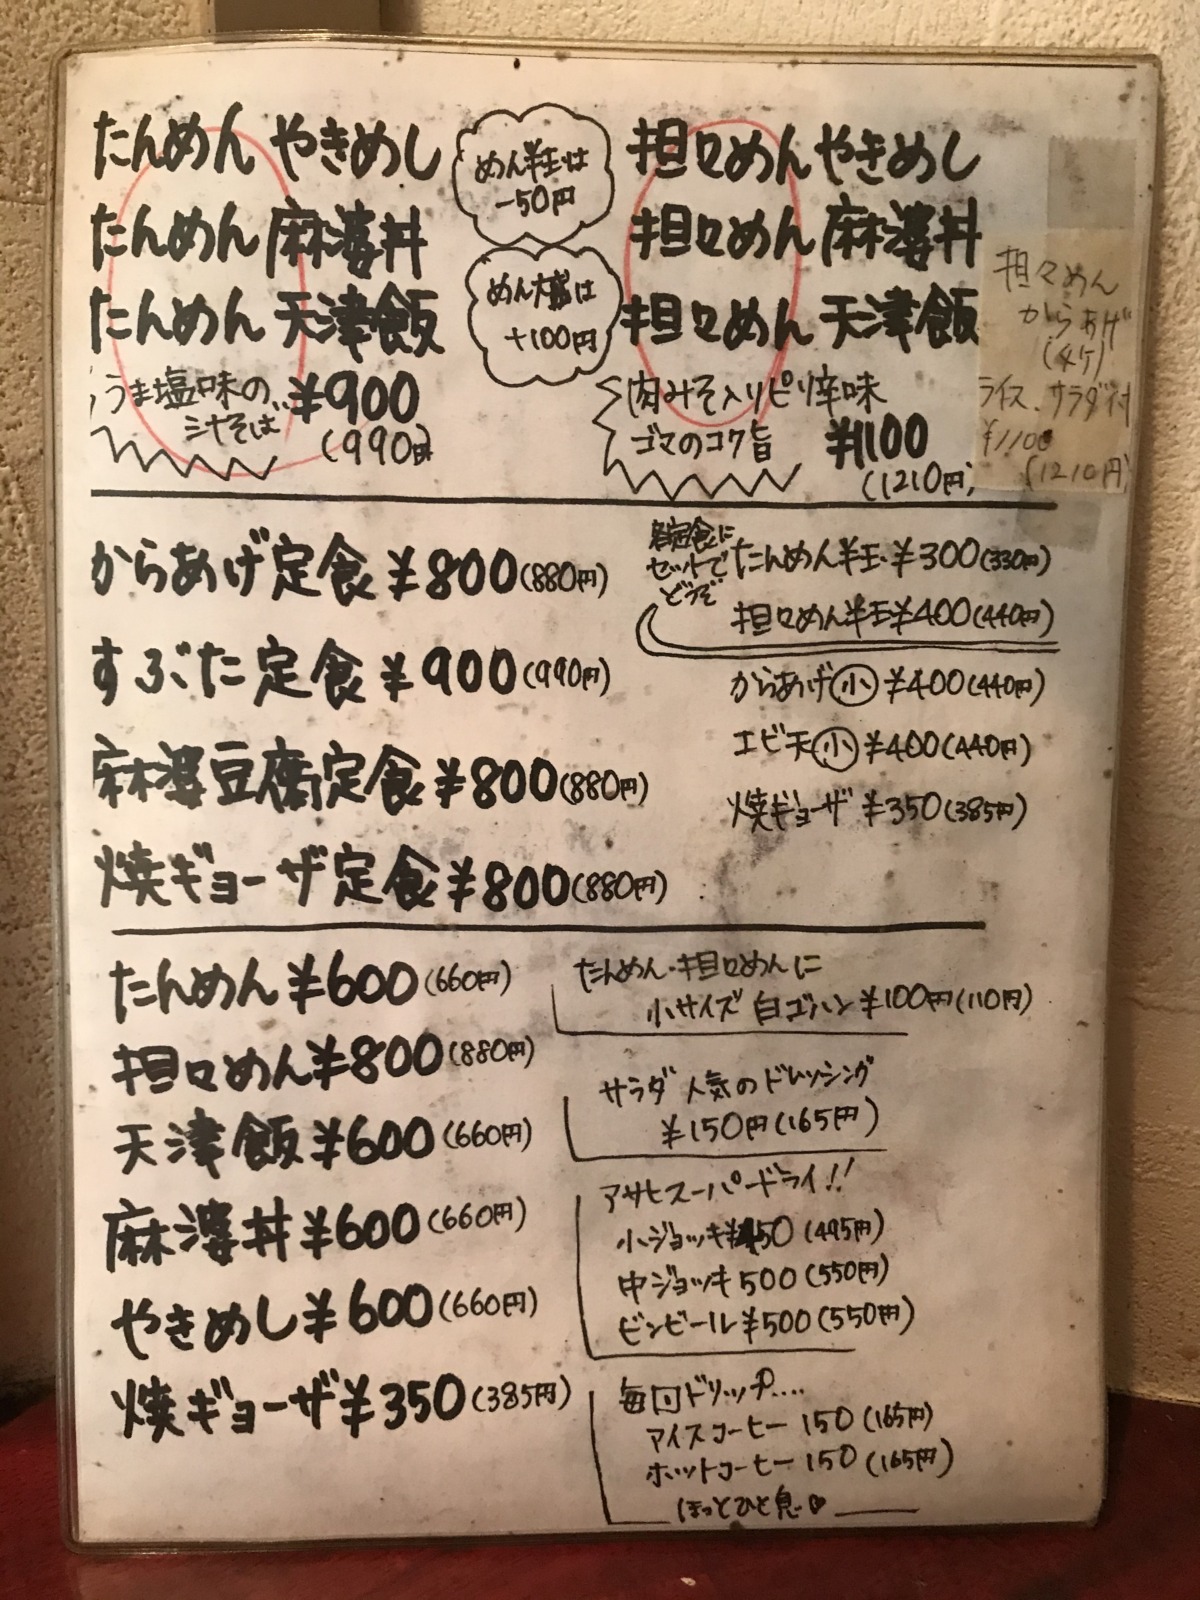 たんめん やきめし
たんめん 麻婆丼
たんめん 天津飯
うま塩味の
汁そば
¥900
(990円)
めん半玉は
-50円
めん大盛は
+100円
担々めん やきめし
担々めん 麻婆丼
担々めん 天津飯
肉みそ入りピリ辛味
ゴマのコク旨
¥1100
(1210円)
担々めん
からあげ
(4ケ)
ライス、サラダ付
¥1100
(1210円)
からあげ定食 ¥800(880円)
すぶた定食 ¥900(990円)
麻婆豆腐定食 ¥800(880円)
焼ギョーザ定食 ¥800(880円)
各定食に
セットで
どうぞ
たんめん半玉 ¥300(330円)
担々めん半玉 ¥400(440円)
からあげ小 ¥400(440円)
エビ天小 ¥400(440円)
焼ギョーザ ¥350(385円)
たんめん ¥600(660円)
担々めん ¥800(880円)
天津飯 ¥600(660円)
麻婆丼 ¥600(660円)
やきめし ¥600(660円)
焼ギョーザ ¥350(385円)
たんめん・担々めんに
小サイズ 白ゴハン ¥100円(110円)
サラダ 人気のドレッシング
¥150円(165円)
アサヒスーパードライ!!
小ジョッキ ¥450(495円)
中ジョッキ 500(550円)
ビンビール ¥500(550円)
毎回ドリップ....
アイスコーヒー 150(165円)
ホットコーヒー 150(165円)
ほっとひと息♡